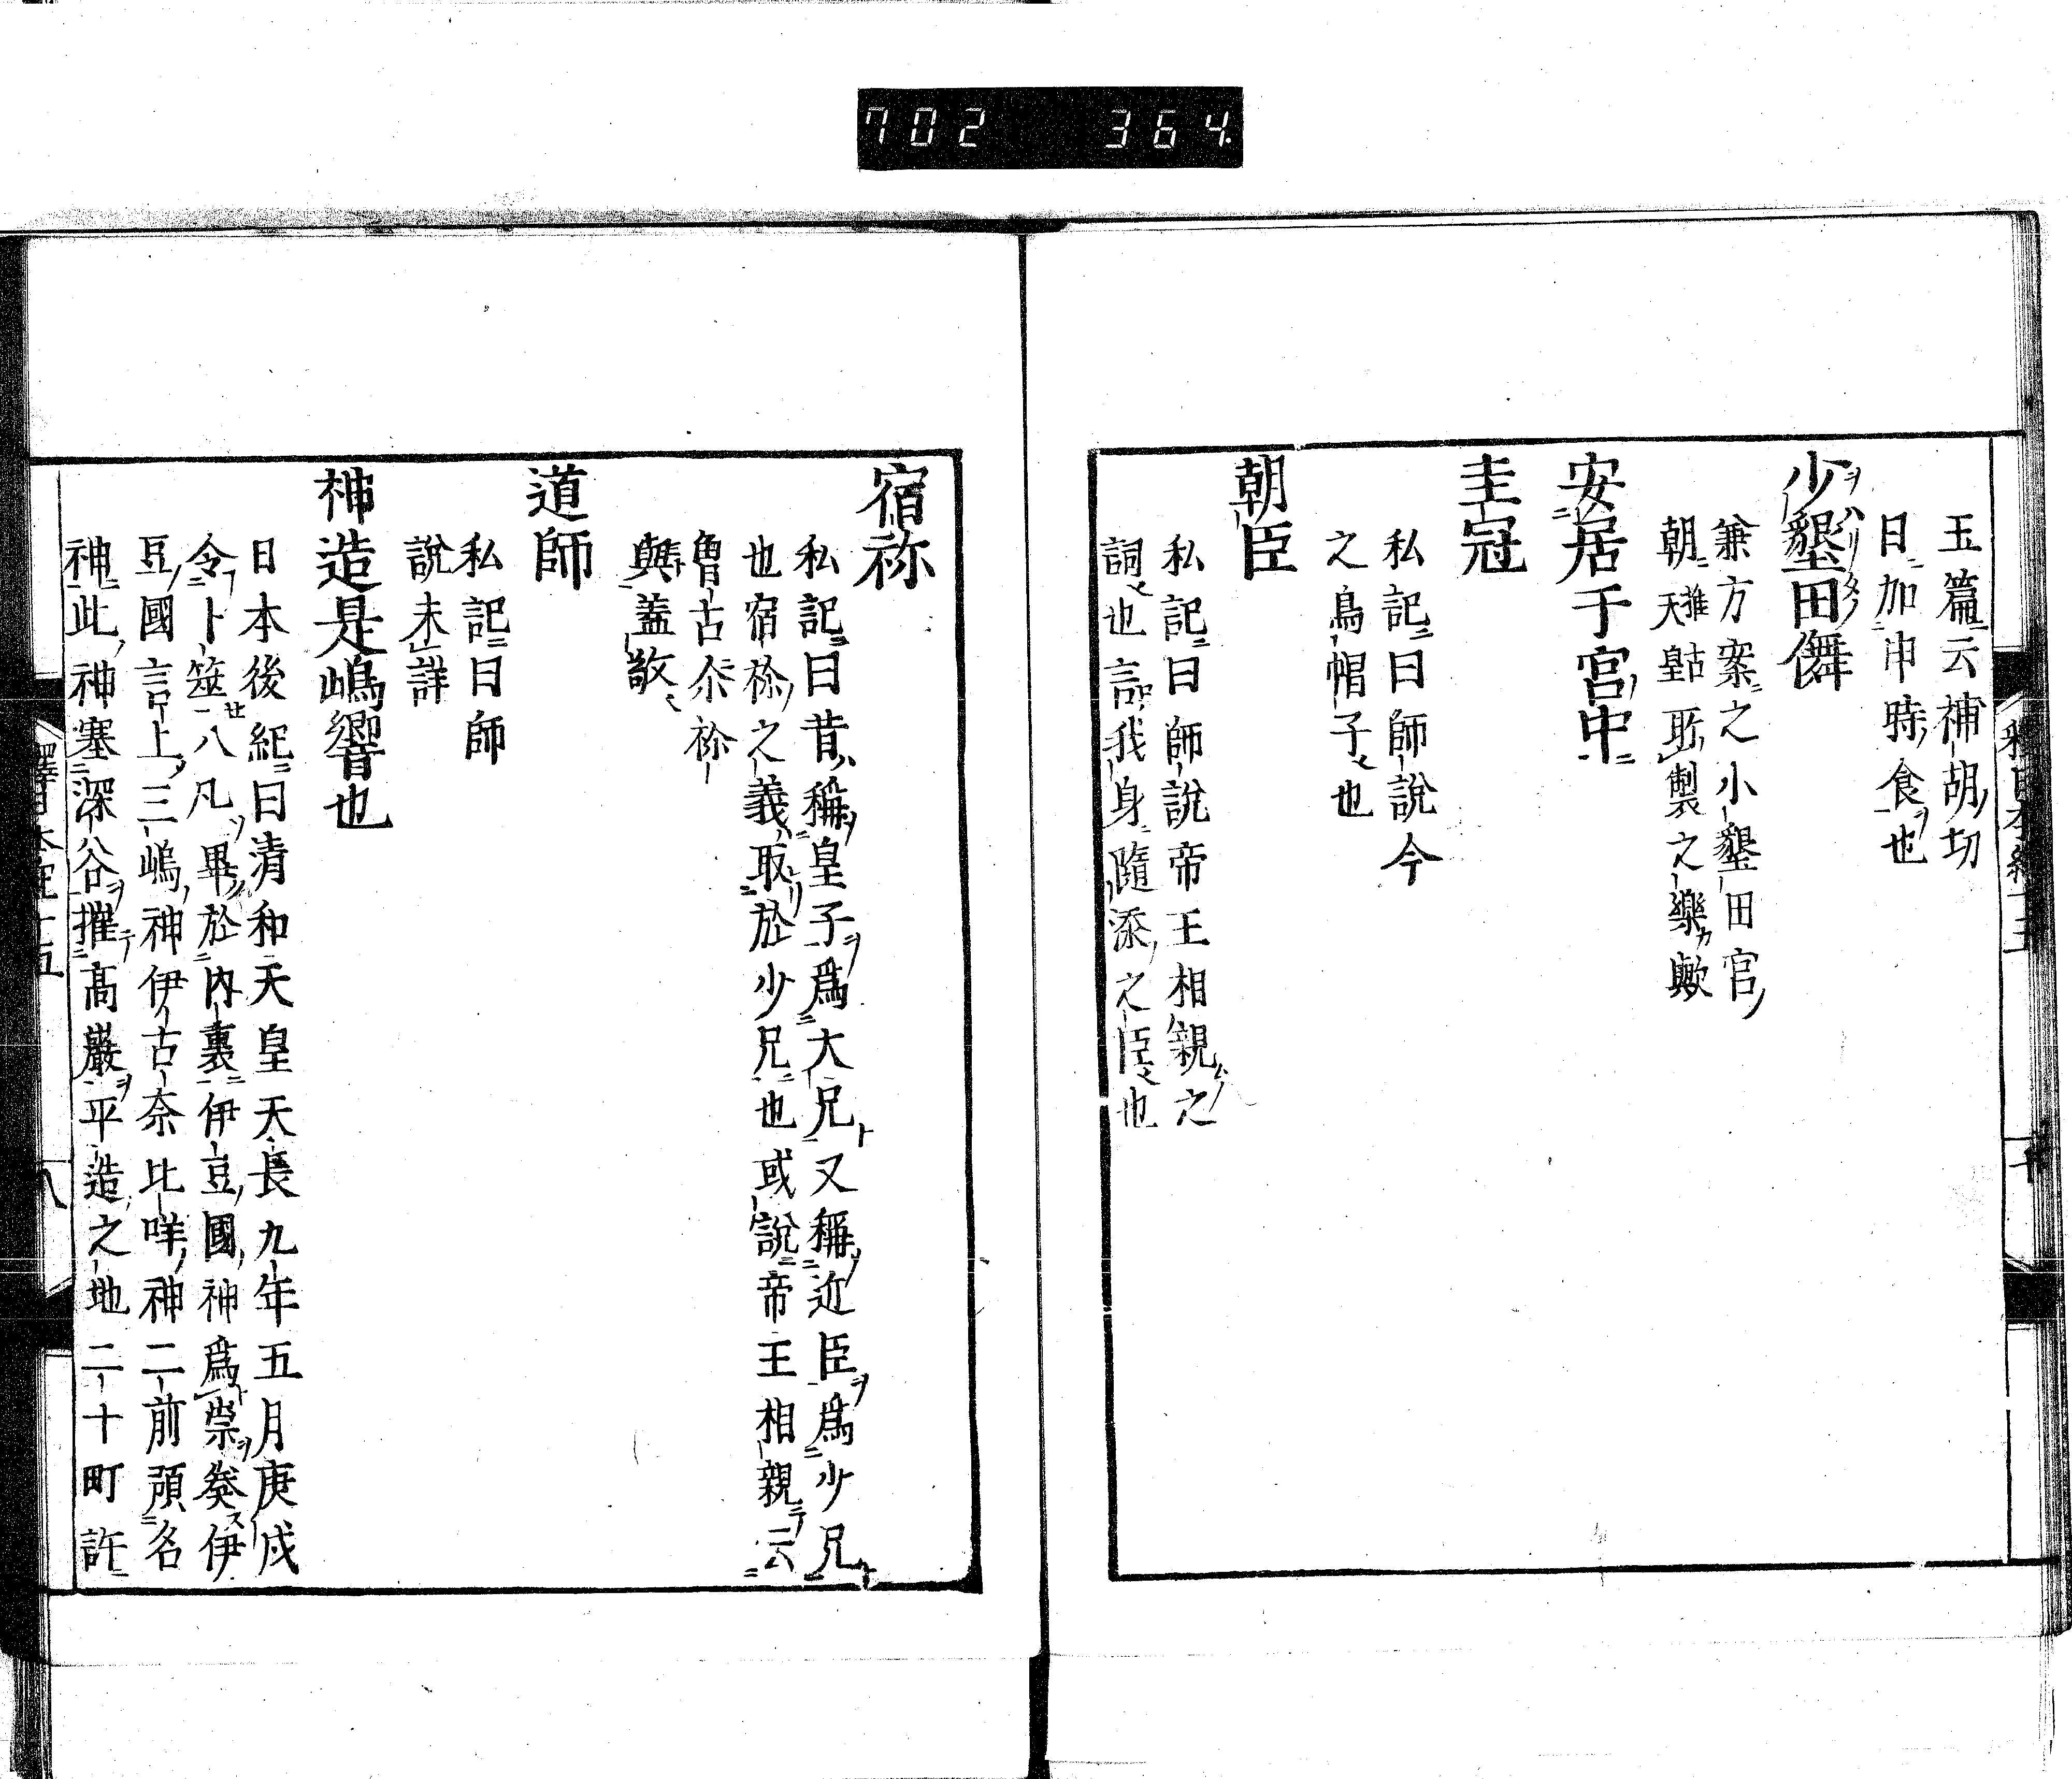 702 364
玉篇云補胡切
日加申時食也
少墾田儛
兼方案之小墾田官
朝推古天皇所製之樂歟
安居于宮中
圭冠
私記曰師說今
之烏帽子也
朝臣
私記曰師說帝王相親之
詞也言我身隨添之臣也
宿祢
私記曰昔稱皇子爲大兄又稱近臣爲少兄
也宿祢之義取於少兄也或說帝王相親云
魯古尒祢
與蓋敬
道師
私記曰師
說未詳
神造是嶋響也
日本後紀曰清和天皇天長九年五月庚戌
令卜筮八凡畢於內裏伊豆國神爲祟癸伊
豆國言上三嶋神伊古奈比咩神二前預名
神此神塞深谷摧高巖平造之地二十町許
釋日本紀十五
八